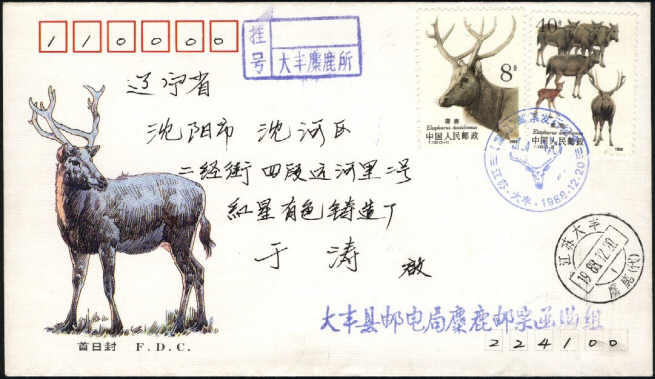 110000
挂号
大丰麋鹿所
8分
麋鹿
Elaphurus davidianus
中国人民邮政
40分
Elaphurus davidianus
中国人民邮政
1988
辽宁省
沈阳市 沈河区
二经街 四段远河里二号
红星有色铸造厂
于 涛 启
江苏·大丰·1988.12.20
江苏大丰
1988.12.20
麋鹿(代)
首日封 F.D.C.
大丰县邮电局麋鹿邮票
组
224100